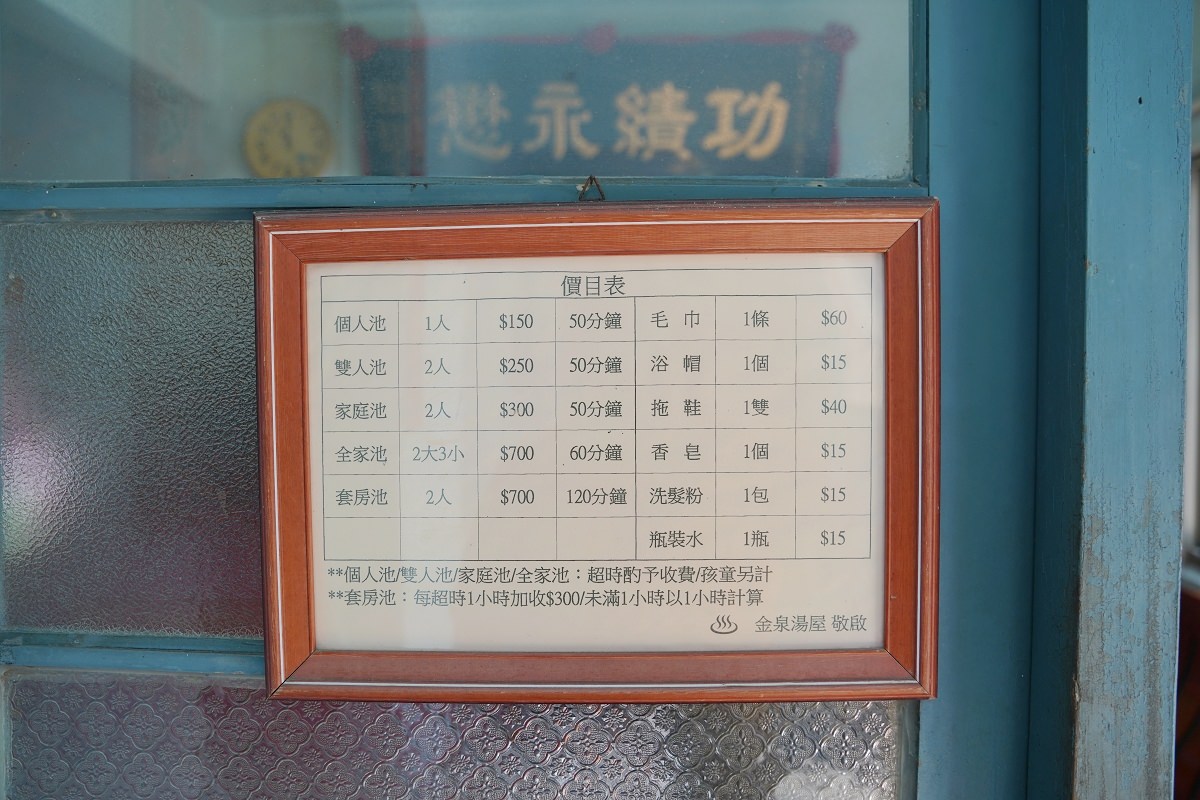 懋永績功
價目表
個人池 1人 $150 50分鐘 毛巾 1條 $60
雙人池 2人 $250 50分鐘 浴帽 1個 $15
家庭池 2人 $300 50分鐘 拖鞋 1雙 $40
全家池 2大3小 $700 60分鐘 香皂 1個 $15
套房池 2人 $700 120分鐘 洗髮粉 1包 $15
瓶裝水 1瓶 $15
**個人池/雙人池/家庭池/全家池：超時酌予收費/孩童另計
**套房池：每超時1小時加收$300/未滿1小時以1小時計算
金泉湯屋 敬啟